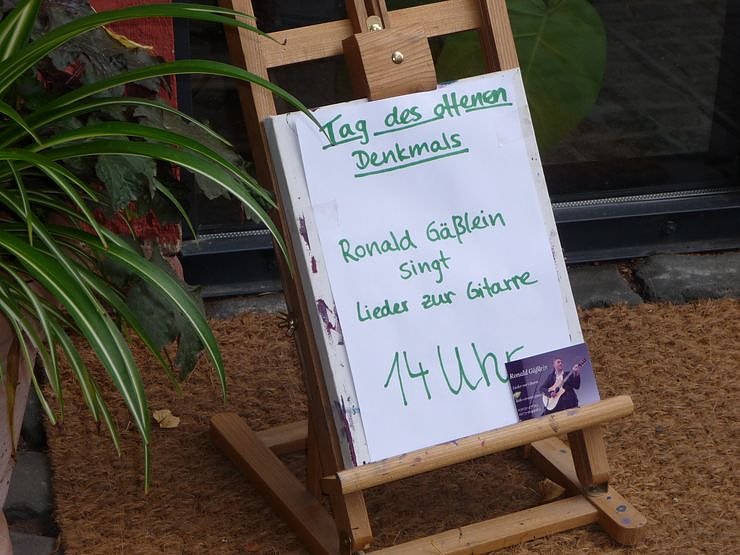 Tag des offenen
Denkmals
Ronald Gäßlein
singt
Lieder zur Gitarre
14 Uhr
Ronald Gäßlein